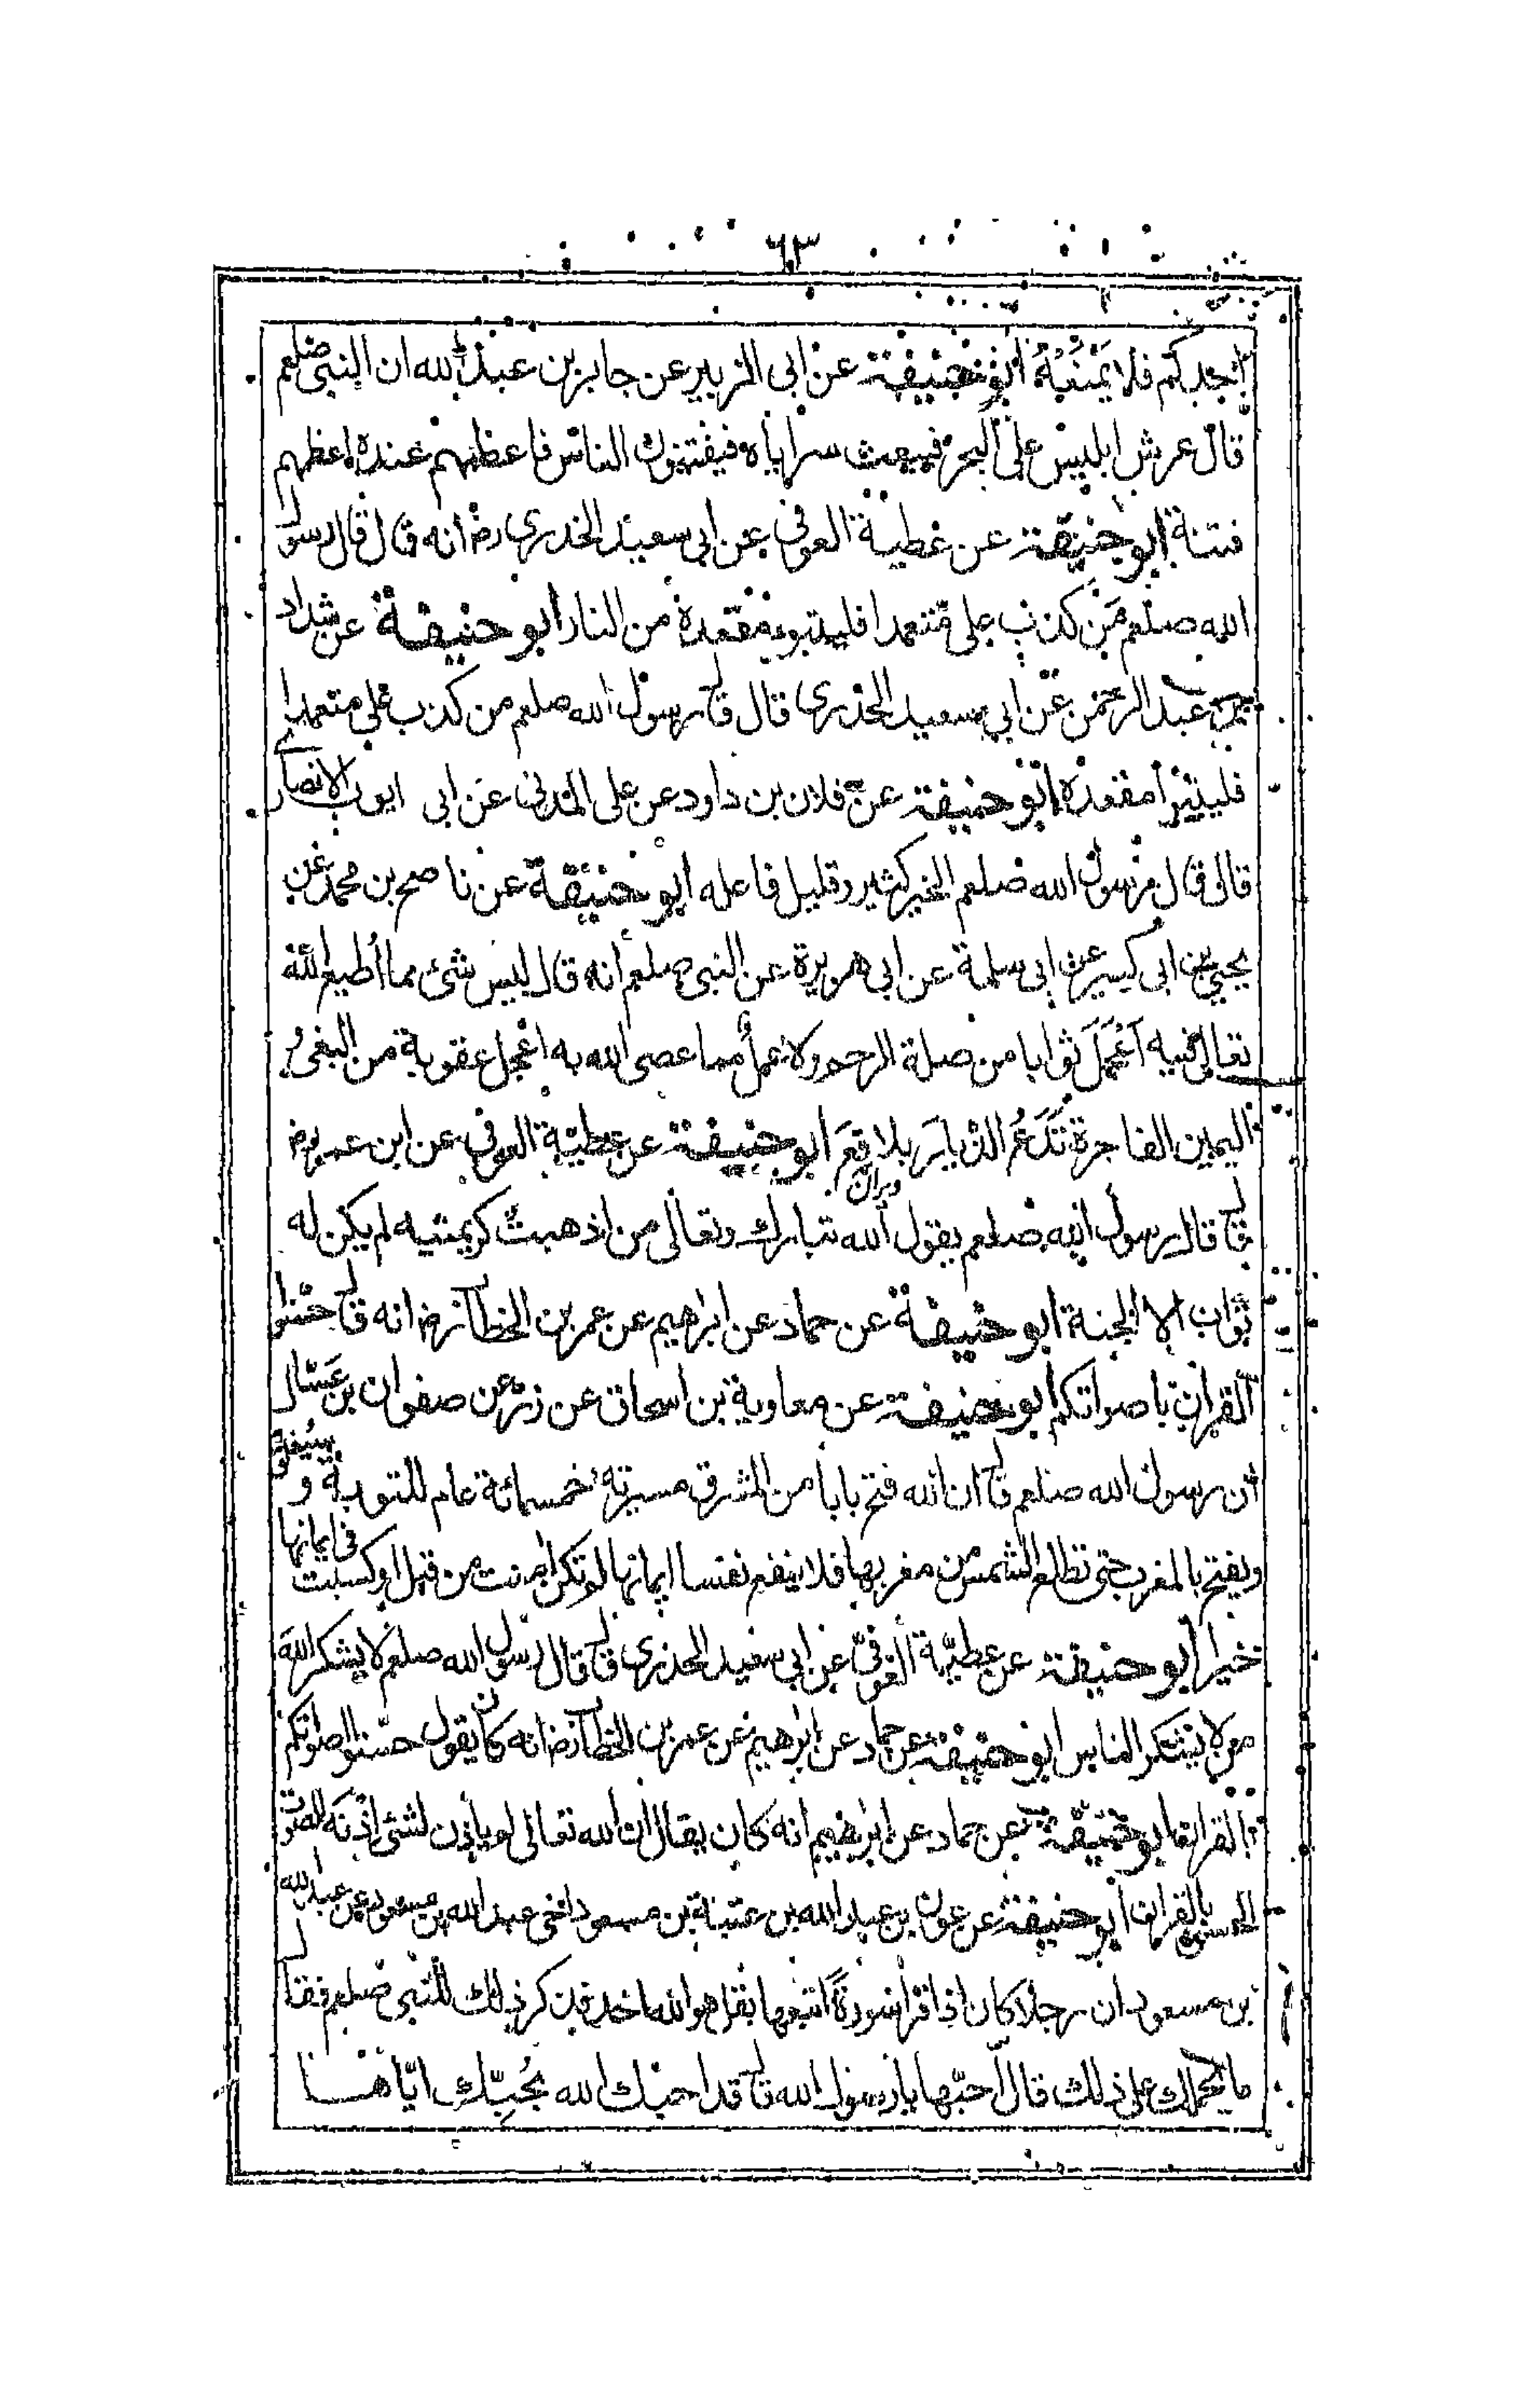 ٦٣
احدكم فلا يمنعه ابو حنيفة عن ابى الزبير عن جابر بن عبد الله ان النبى صلعم
قال عرش ابليس على البحر فيبعث سراياه فيفتنون الناس فاعظمهم عنده اعظمهم
فتنة ابو حنيفة عن عطية العوفى عن ابى سعيد الخدرى رض انه قال قال رسول
الله صلعم من كذب على متعمدا فليتبوء مقعده من النار ابو حنيفة عن شداد
بن عبد الرحمن عن ابى سعيد الخدرى قال قال رسول الله صلعم من كذب على متعمدا
فليتبوأ مقعده ابو حنيفة عن فلان بن داود عن على المدنى عن ابى ايوب الانصارى
قال قال رسول الله صلعم الخير كثير وقليل فاعله ابو حنيفة عن ناصح بن محمد عن
يحيى بن ابى كسير عن ابى سلمة عن ابى هريرة عن النبى صلعم انه قال ليس شئ مما أطيع الله
تعالى فيه أعجل ثوابا من صلة الرحم ولا عمل مما عصى الله به اعجل عقوبة من البغى و
اليمين الفاجرة تدع الديار بلاقع ابو حنيفة عن عطية العوفى عن ابن عمر رض
ويران
قال قال رسول الله صلعم يقول الله تبارك وتعالى من اذهبت كريمتيه لم يكن له
ثواب الا الجنة ابو حنيفة عن حماد عن ابرهيم عن عمر بن الخطاب رض انه قال حسنوا
القران باصواتكم ابو حنيفة عن معاوية بن اسحاق عن زر عن صفوان بن عسال
ان رسول الله صلعم قال ان الله فتح بابا من المشرق مسيرته خمسمائة عام للتوبة و
ويفتح بالمغرب حتى تطلع الشمس من مغربها فلا ينفع نفسا ايمانها لم تكن امنت من قبل او كسبت فى ايمانها
خيرا ابو حنيفة عن عطية العوفى عن ابى سعيد الخدرى قال قال رسول الله صلعم لا يشكر الله
من لا يشكر الناس ابو حنيفة عن حماد عن ابرهيم عن عمر بن الخطاب رض انه كان يقول حسنوا اصواتكم
بالقران ابو حنيفة عن حماد عن ابرهيم انه كان يقال ان الله تعالى لم ياذن لشئ اذنه للصوت
الحسن بالقران ابو حنيفة عن عون بن عبد الله بن عتبة بن مسعود اخى عبد الله بن مسعود عن عبد الله
بن مسعود ان رجلا كان اذا قرأ سورة اتبعها بقل هو الله احد فذكر ذلك للنبى صلعم فقال
ما يحملك على ذلك قال احبها يا رسول الله قال قد احبك الله بحبك اياها